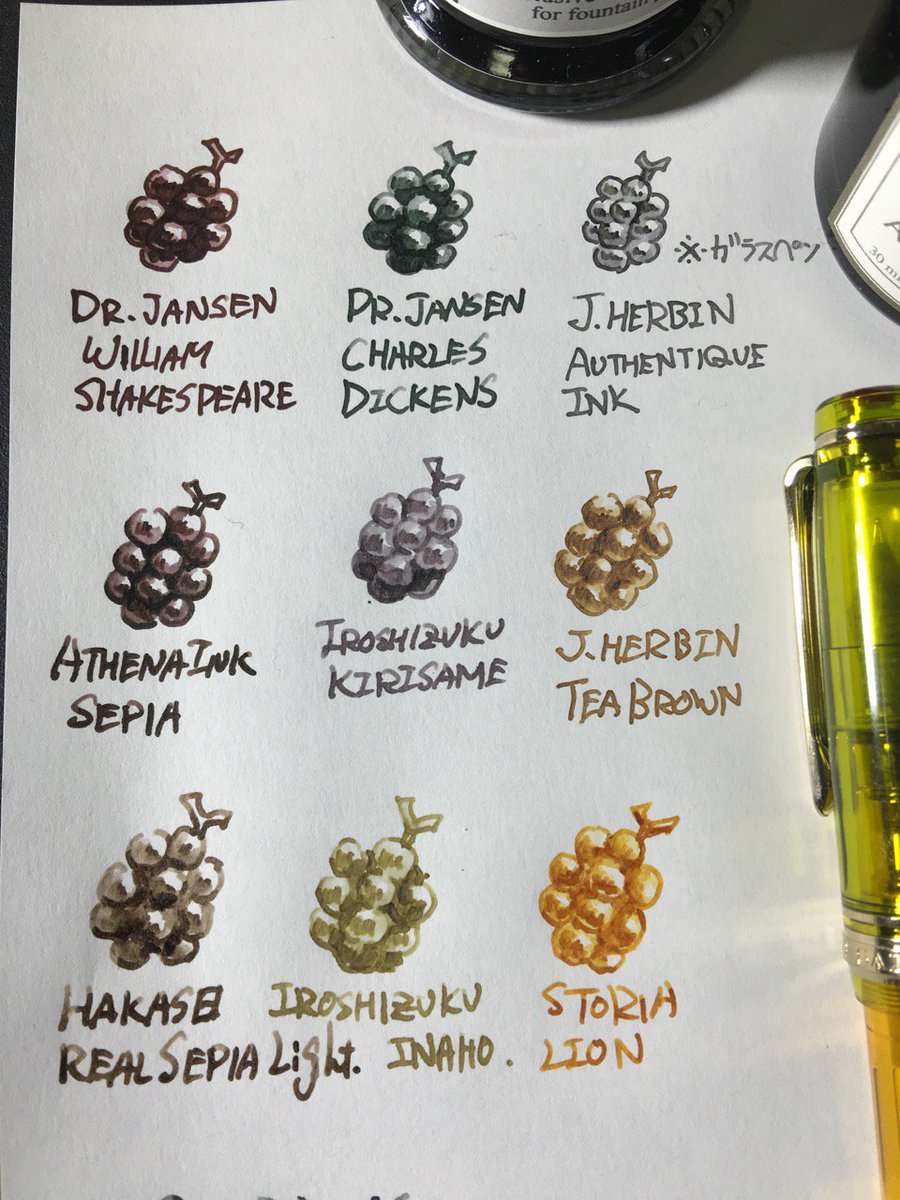 for fountain
30 ml
DR. JANSEN
WILLIAM
SHAKESPEARE
DR. JANSEN
CHARLES
DICKENS
※ガラスペン
J. HERBIN
AUTHENTIQUE
INK
ATHENA INK
SEPIA
IROSHIZUKU
KIRISAME
J. HERBIN
TEA BROWN
HAKASE
REAL SEPIA Light.
IROSHIZUKU
INAHO.
STORIA
LION